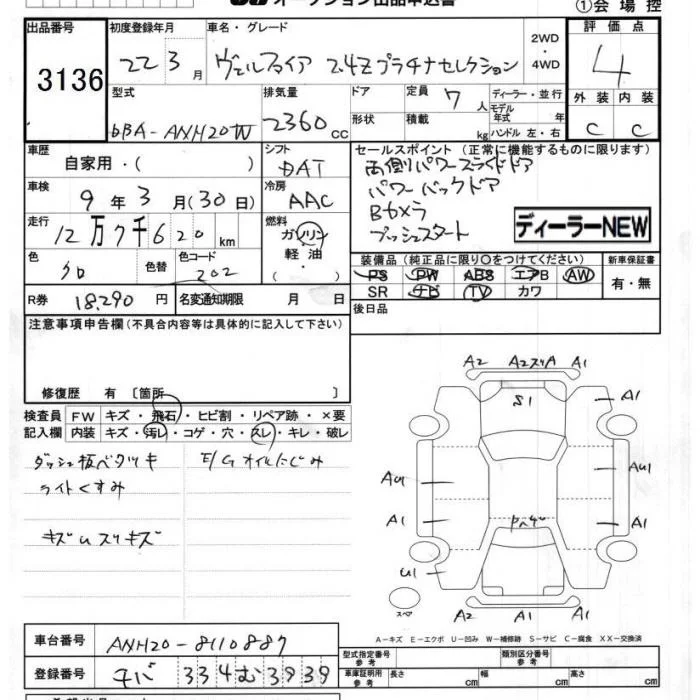 オークション出品申込書
①会場控
出品番号 初度登録年月 車名・グレード 2WD・4WD 評価点
3136 22 3月 ヴェルファイア 2.4Zプラチナセレクション 4
型式 排気量 ドア 定員 7人 ディーラー・並行 外装 内装
DBA-ANH20W 2360cc 形状 積載 kg モデル年式 年 ハンドル 左・右 C C
車歴 シフト セールスポイント(正常に機能するものに限ります)
自家用・( ) DAT 両側パワースライドドア
車検 冷房 パワーバックドア
9年3月(30日) AAC Bカメラ
走行 燃料 プッシュスタート
12万7千620km ガソリン 軽油 ディーラーNEW
色 色替 色コード 装備品(純正品に限り○をつけてください) 新車保証書
クロ 202 ( ) PS PW ABS エアB AW 有・無
R券 18,290円 名変通知期限 月 日 SR ナビ TV カワ
注意事項申告欄(不具合内容等は具体的に記入して下さい) 後日品
修復歴 有 〔箇所 〕
検査員 FW キズ・飛石・ヒビ割・リペア跡・×要
記入欄 内装 キズ・汚レ・コゲ・穴・スレ・キレ・破レ
ダッシュ板ベタツキ E/Gオイルにじみ
ライトくすみ
キズuスリキズ
A2 A2スリA A1
S1 A1
AU1 AU1
A1 A1
U1
スペア A2 A1 A2
A−キズ E−エクボ U−凹み W−補修跡 S−サビ C−腐食 XX−交換済
車台番号 ANH20-8110887
型式指定番号 参考 類別区分番号 参考
登録番号 チバ 334む3939
車庫証明用 参考 長さ cm 幅 cm 高さ cm